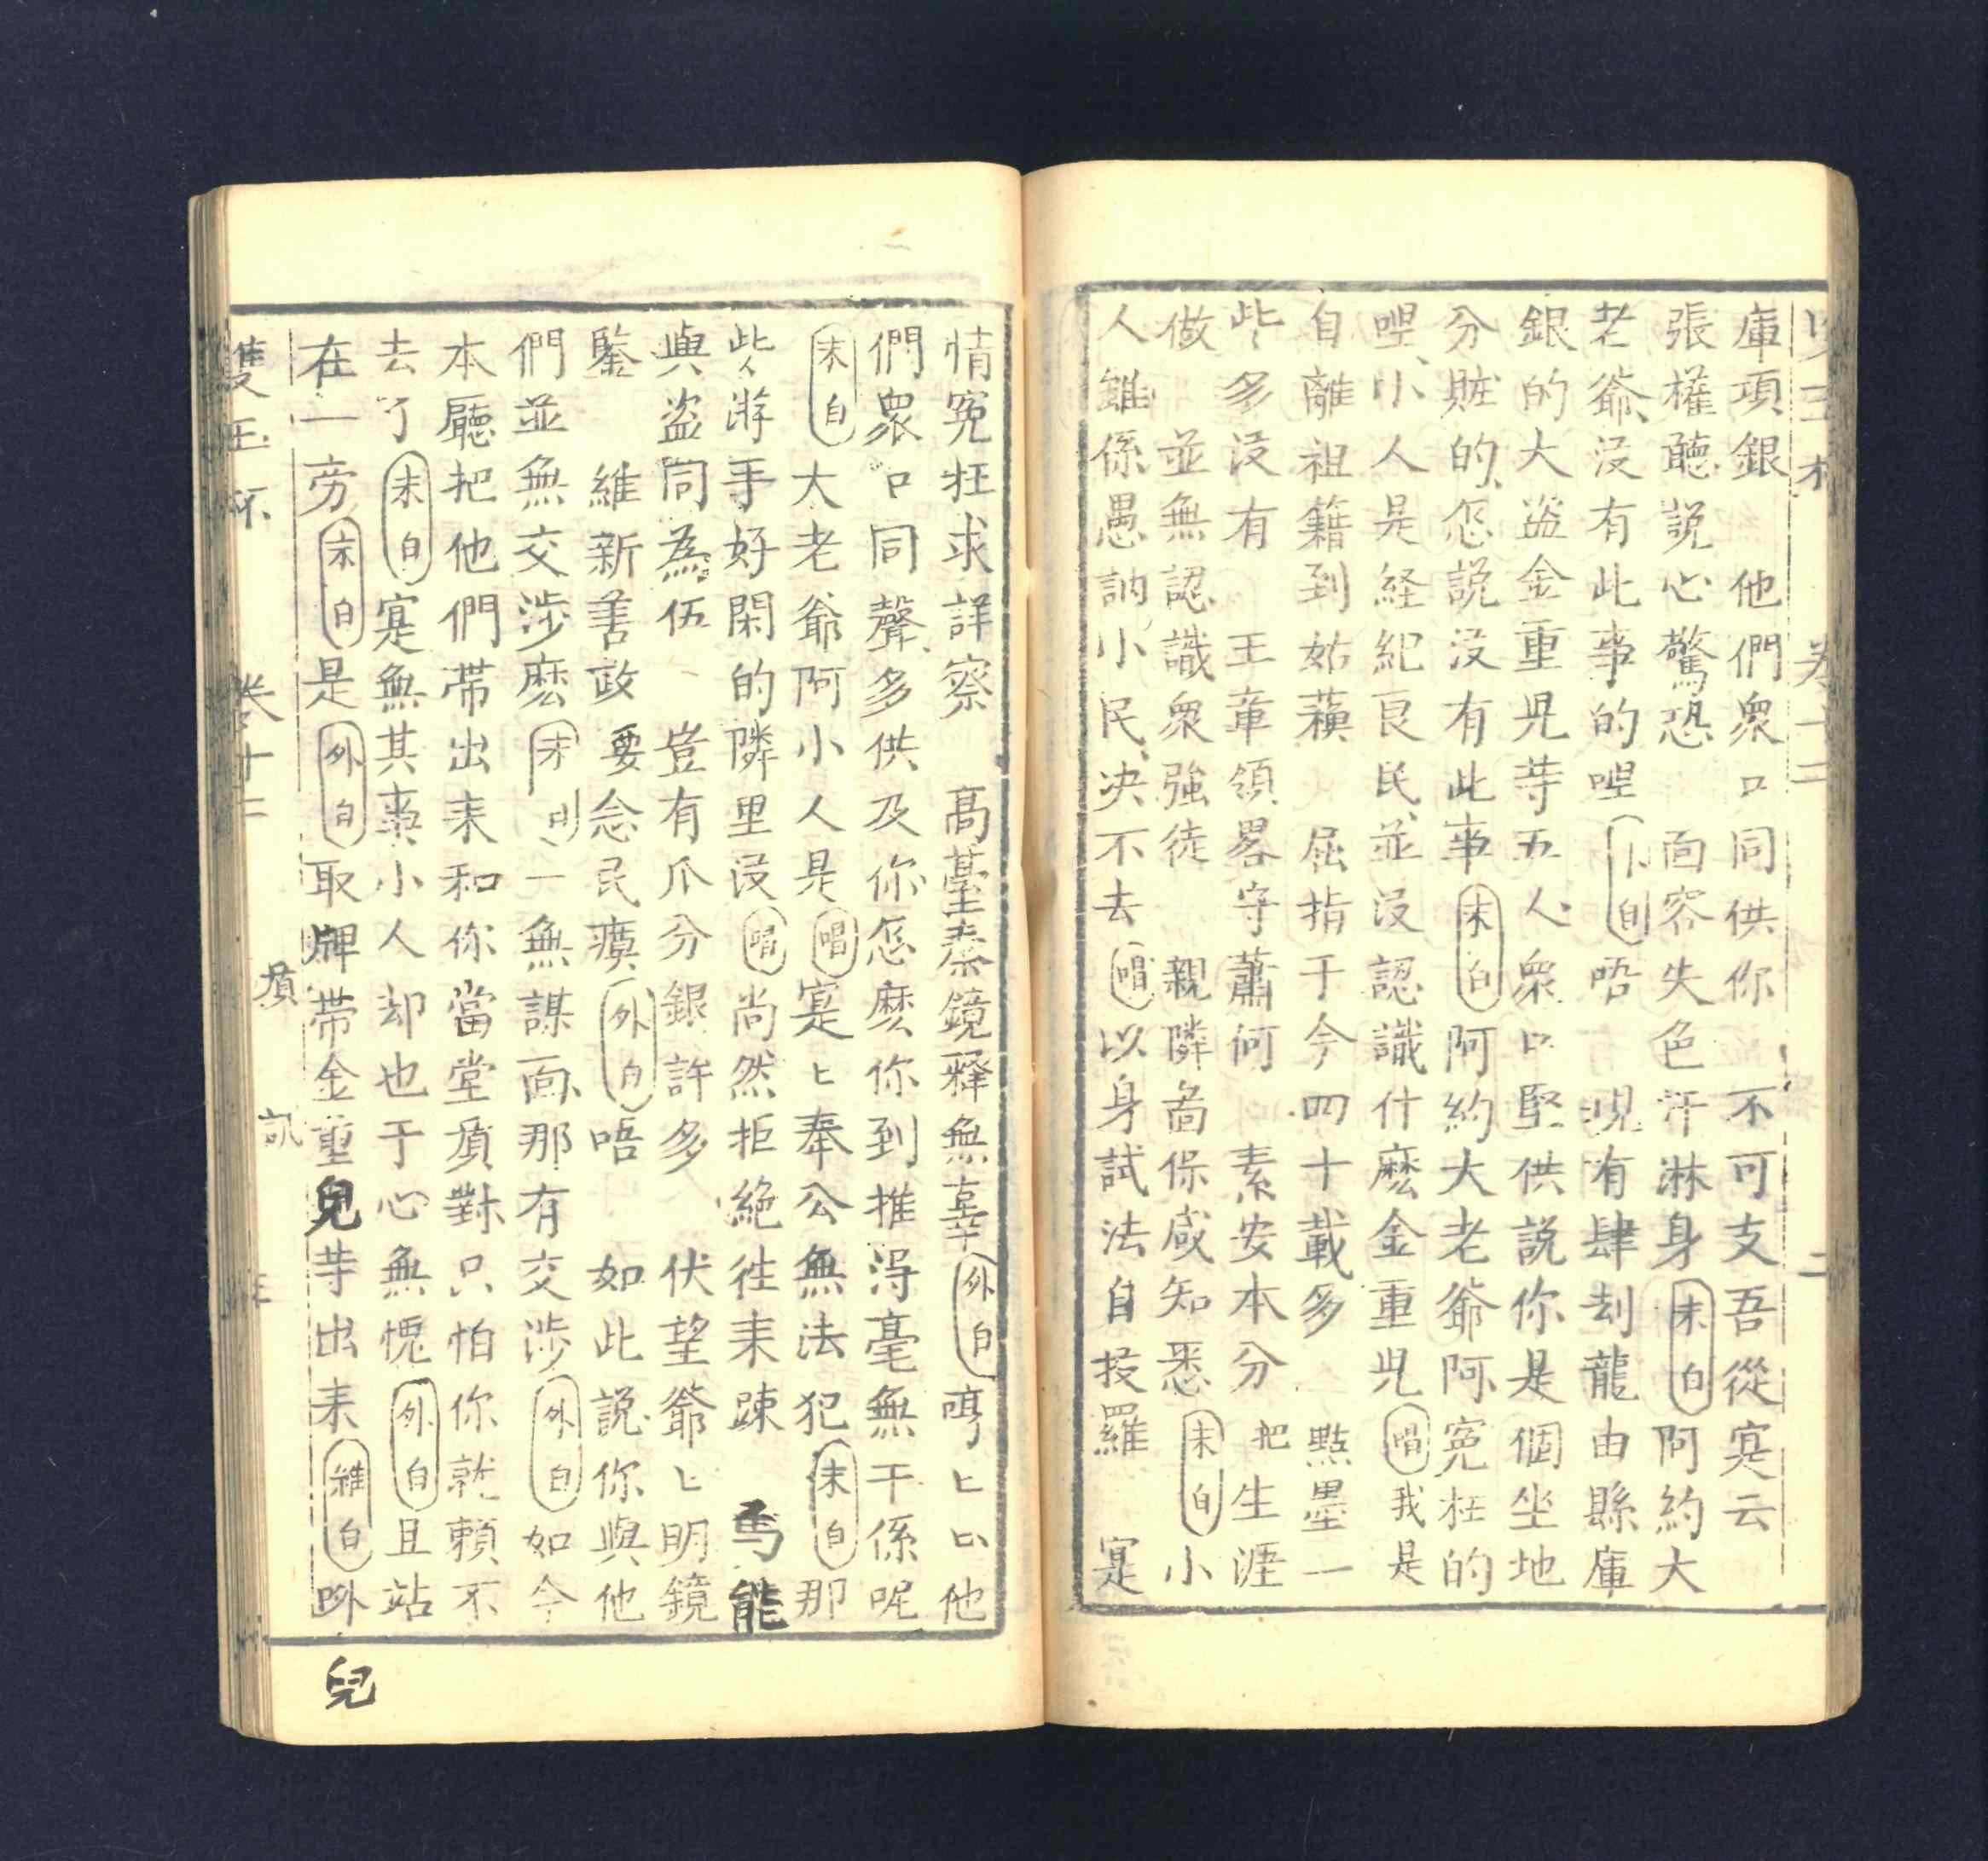 庫項銀　他們衆口同供你　不可支吾從寔云
張權聽說心驚恐　面容失色汗淋身（末白）阿約大
老爺沒有此事的哩（外白）唔　現有肆刦龍由縣庫
銀的大盜金重児䒭五人衆口堅供說你是個坐地
分賍的怎說沒有此事（末白）阿約大老爺阿寃枉的
哩小人是経紀良民並沒認識什麽金重児（唱）我是
自離祖籍到姑蘓　屈指于今四十載多　㸃墨一
些多沒有　王章領畧守蕭何　素安本分　把生涯
做　並無認識衆強徒　親隣啚保咸知悉（末白）小
人雖係愚訥小民决不去（唱）以身試法自投羅　寔
情寃枉求詳察　髙䑓秦鏡釋無辜（外白）哼〻口他
們衆口同聲多供及你怎麽你到推淂毫無干係呢
（末白）大老爺阿小人是（唱）寔〻奉公無法犯（末白）那
些游手好閑的隣里沒（唱）尚然拒絶徃耒踈　焉能
與盜同為伍　豈有爪分銀許多　伏望爺〻明鏡
鑒　維新善政要念民瘼（外白）唔　如此說你與他
們並無交涉麽（末白）一無謀面那有交涉（外白）如今
本廳把他們帶出耒和你當堂質對只怕你就賴不
去了（末白）寔無其事小人却也于心無愧（外白）且站
在一旁（末白）是（外白）取牌帶金重兒䒭出耒（雜白）㕟
兒
雙玉杯　卷十二　質訊